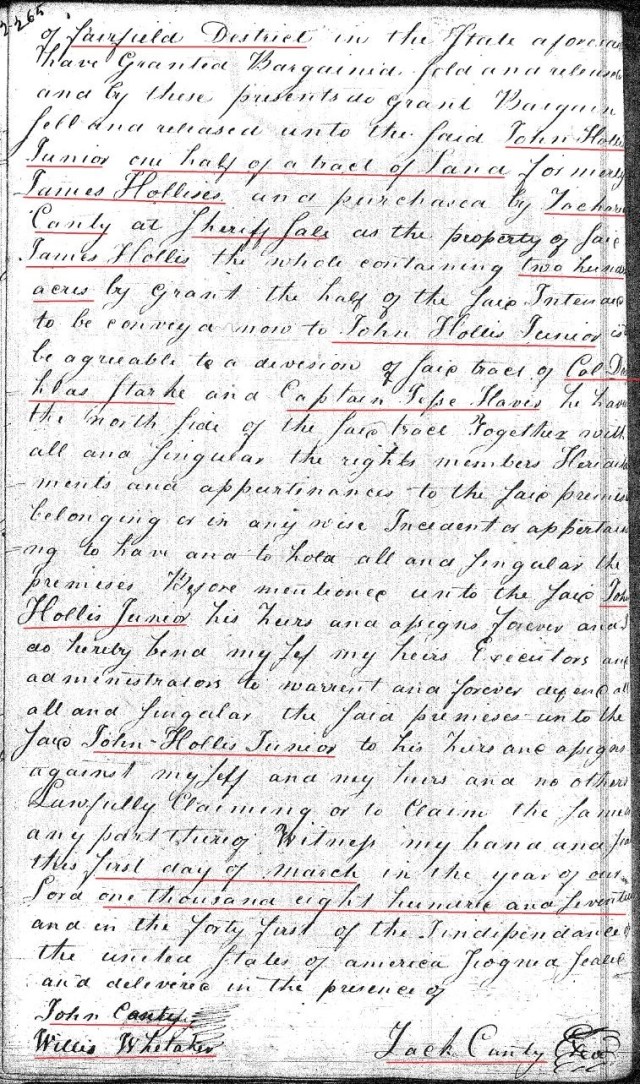 2-265
of Fairfield District in the State aforesai
have Granted Bargained Sold and releas
and by these presents do grant Bargain
Sell and released unto the said John Hollis
Junior one half of a tract of Land formerly
James Hollises and purchased by Zachari
Canty at Sheriff Sale as the property of said
James Hollis the whole containing two hund
acres by grant the half of the said Intended
to be conveyd now to John Hollis Junior is
be agreeable to a devision of said tract of Col
has Starke and Captain Jesse Havis he have
the north side of the said tract Together with
all and Singular the rights members Heridit
ments and appurtinances to the said premis
belonging or in any wise Incident or appertain
ng to have and to hold all and singular the
premeses Before mentioned unto the said John
Hollis Junior his heirs and asigns forever and I
do hereby bend my self my heirs Executors and
administrators to warrent and forever defend all
all and singular the said premeses unto the
said John Hollis Junior to his heirs and asigns
against my self and my heirs and no others
Lawfully Claiming or to Claim the same
any part thereof Witness my hand and
this first day of march in the year of our
Lord one thousand eight hundred and Seventee
and in the forty first of the Indipendance
the united States of america Signed Seale
and delivered in the presence of
John Canty
Willis Whitaker
Zack Canty